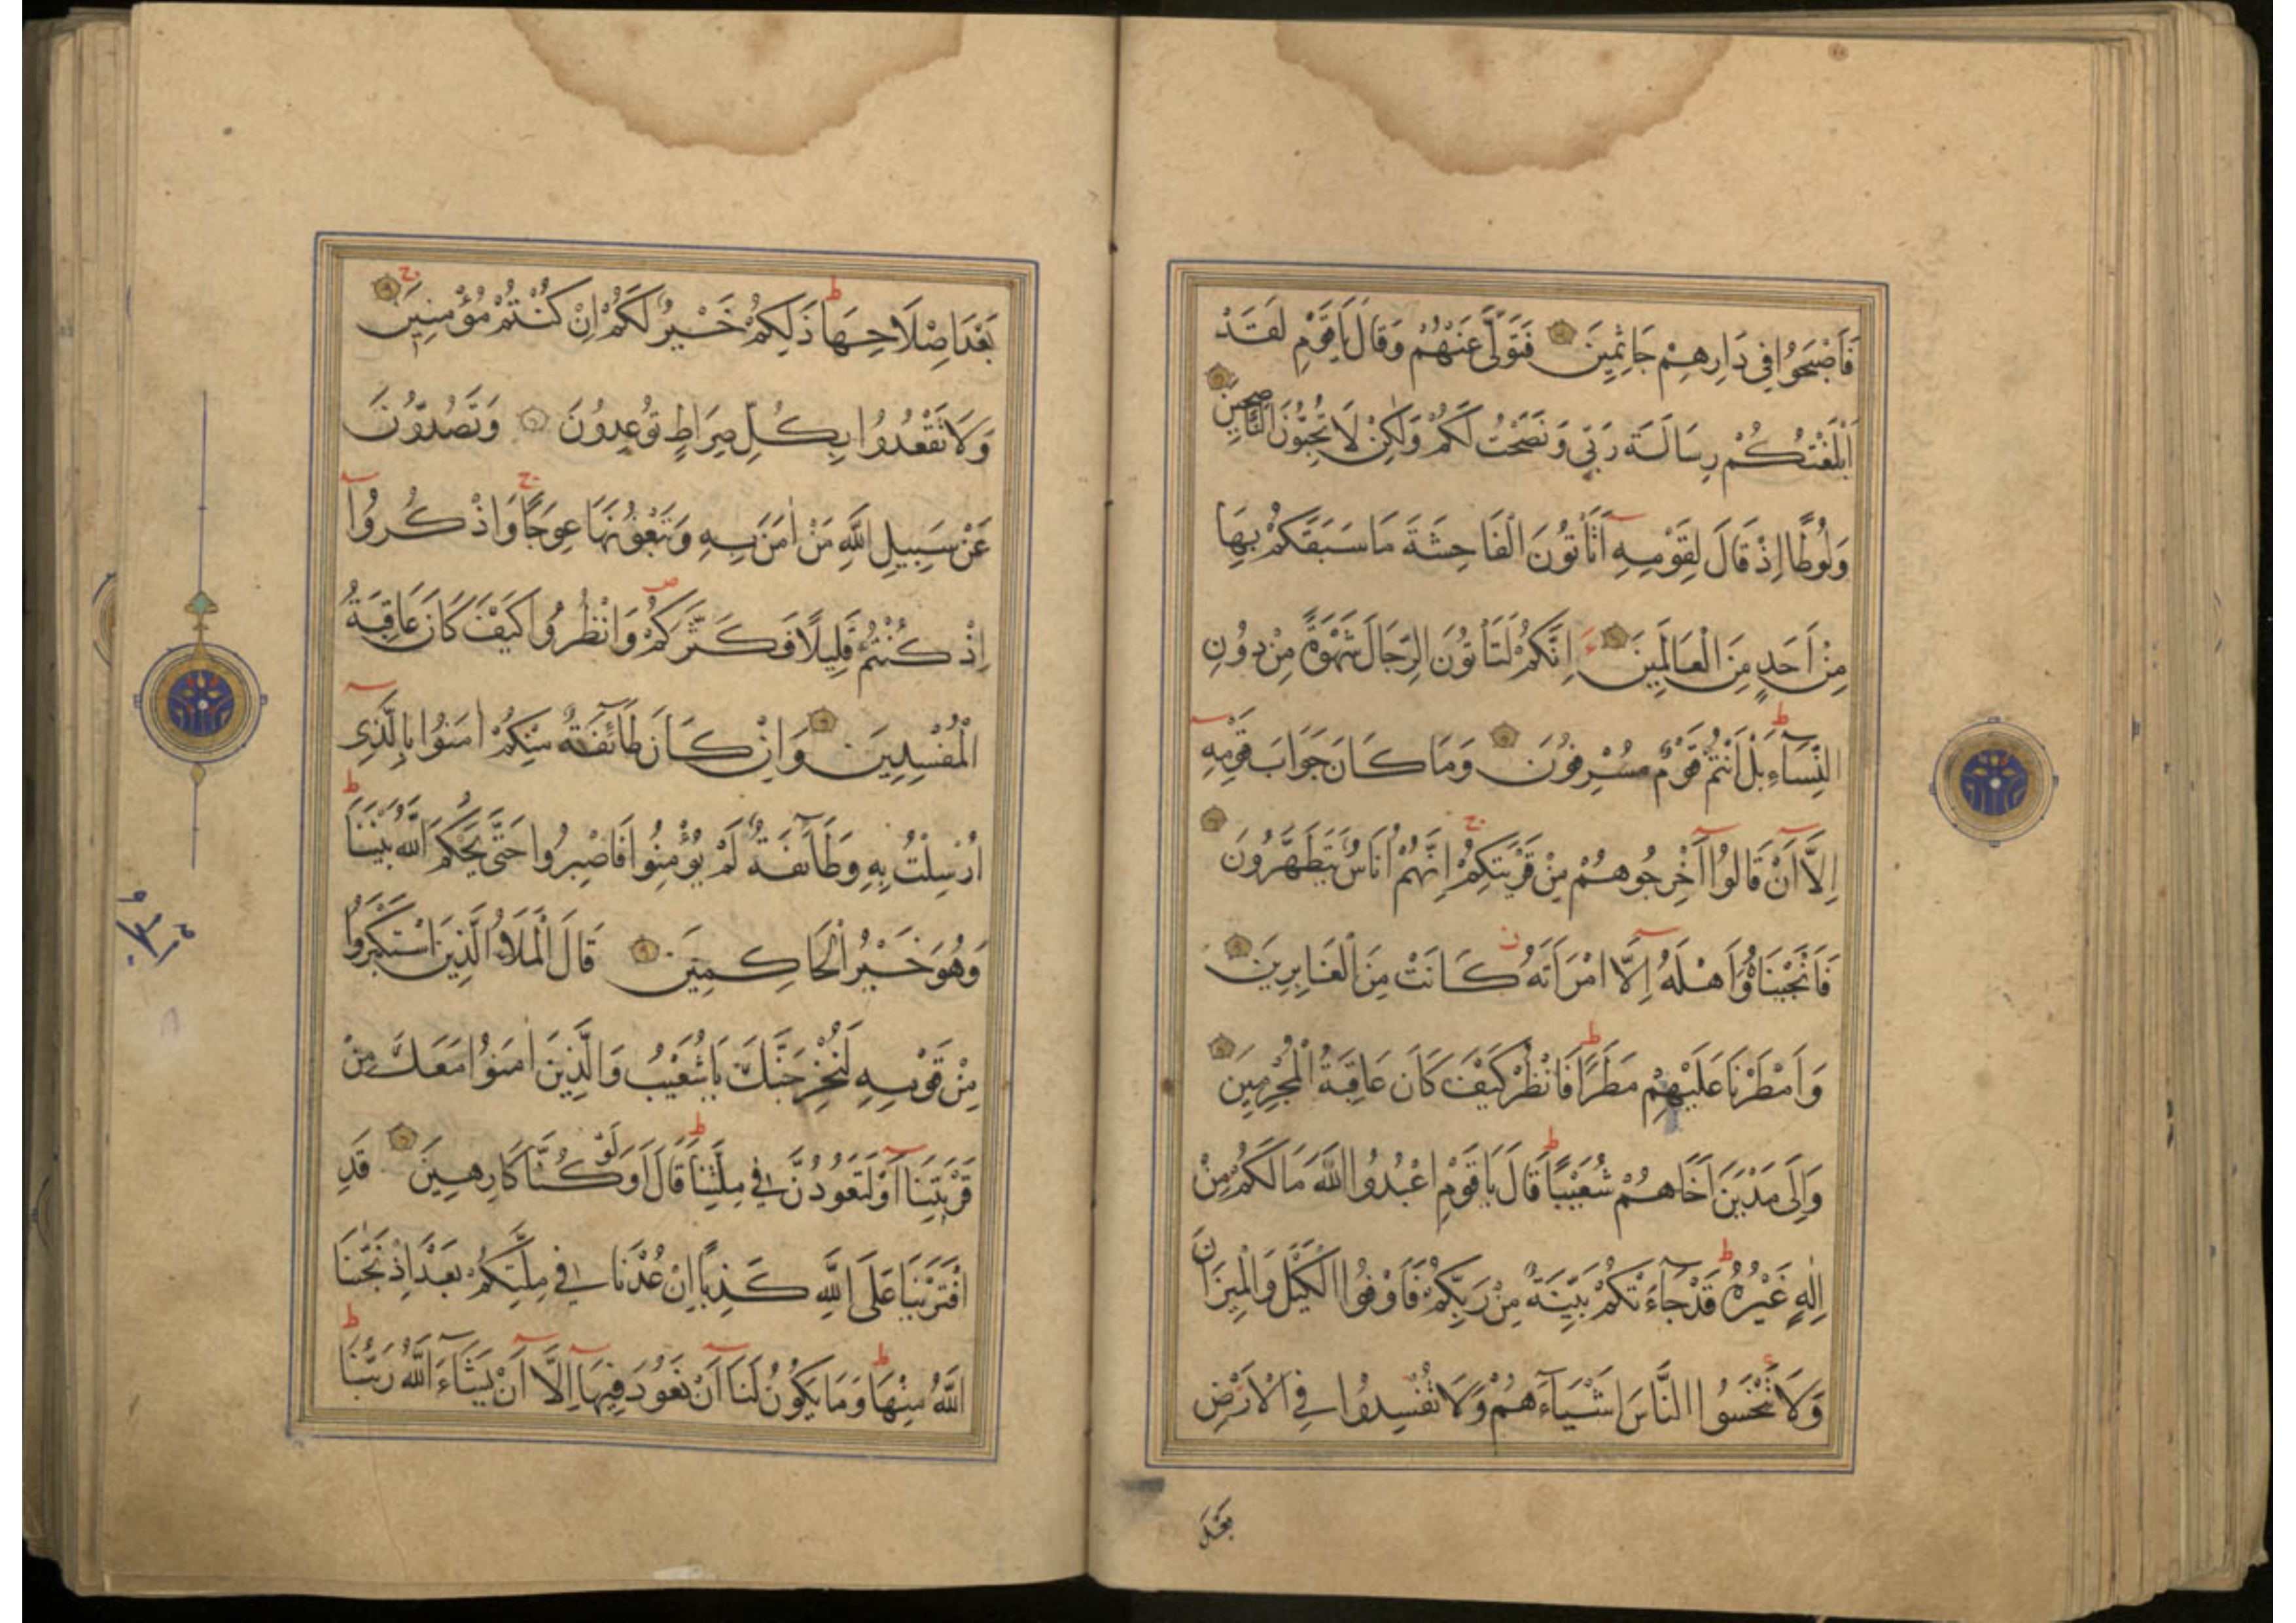 فَاَصْبَحُوا فِي دَارِهِمْ جَاثِمِينَ فَتَوَلّٰى عَنْهُمْ وَقَالَ يَا قَوْمِ لَقَدْ
اَبْلَغْتُكُمْ رِسَالَةَ رَبِّي وَنَصَحْتُ لَكُمْ وَلٰكِنْ لَا تُحِبُّونَ النَّاصِحِينَ
وَلُوطًا اِذْ قَالَ لِقَوْمِهِ اَتَأْتُونَ الْفَاحِشَةَ مَا سَبَقَكُمْ بِهَا
مِنْ اَحَدٍ مِنَ الْعَالَمِينَ اِنَّكُمْ لَتَأْتُونَ الرِّجَالَ شَهْوَةً مِنْ دُونِ
النِّسَآءِ بَلْ اَنْتُمْ قَوْمٌ مُسْرِفُونَ وَمَا كَانَ جَوَابَ قَوْمِهِ
اِلَّا اَنْ قَالُوا اَخْرِجُوهُمْ مِنْ قَرْيَتِكُمْ اِنَّهُمْ اُنَاسٌ يَتَطَهَّرُونَ
فَاَنْجَيْنَاهُ وَاَهْلَهُ اِلَّا امْرَاَتَهُ كَانَتْ مِنَ الْغَابِرِينَ
وَاَمْطَرْنَا عَلَيْهِمْ مَطَرًا فَانْظُرْ كَيْفَ كَانَ عَاقِبَةُ الْمُجْرِمِينَ
وَاِلَى مَدْيَنَ اَخَاهُمْ شُعَيْبًا قَالَ يَا قَوْمِ اعْبُدُوا اللّٰهَ مَا لَكُمْ مِنْ
اِلٰهٍ غَيْرُهُ قَدْ جَآءَتْكُمْ بَيِّنَةٌ مِنْ رَبِّكُمْ فَاَوْفُوا الْكَيْلَ وَالْمِيزَانَ
وَلَا تَبْخَسُوا النَّاسَ اَشْيَآءَهُمْ وَلَا تُفْسِدُوا فِي الْاَرْضِ
بَعْدَ
بَعْدَ اِصْلَاحِهَا ذٰلِكُمْ خَيْرٌ لَكُمْ اِنْ كُنْتُمْ مُؤْمِنِينَ
وَلَا تَقْعُدُوا بِكُلِّ صِرَاطٍ تُوعِدُونَ وَتَصُدُّونَ
عَنْ سَبِيلِ اللّٰهِ مَنْ اٰمَنَ بِهِ وَتَبْغُونَهَا عِوَجًا وَاذْكُرُوا
اِذْ كُنْتُمْ قَلِيلًا فَكَثَّرَكُمْ وَانْظُرُوا كَيْفَ كَانَ عَاقِبَةُ
الْمُفْسِدِينَ وَاِنْ كَانَ طَآئِفَةٌ مِنْكُمْ اٰمَنُوا بِالَّذِي
اُرْسِلْتُ بِهِ وَطَآئِفَةٌ لَمْ يُؤْمِنُوا فَاصْبِرُوا حَتّٰى يَحْكُمَ اللّٰهُ بَيْنَنَا
وَهُوَ خَيْرُ الْحَاكِمِينَ قَالَ الْمَلَاُ الَّذِينَ اسْتَكْبَرُوا
مِنْ قَوْمِهِ لَنُخْرِجَنَّكَ يَا شُعَيْبُ وَالَّذِينَ اٰمَنُوا مَعَكَ مِنْ
قَرْيَتِنَا اَوْ لَتَعُودُنَّ فِي مِلَّتِنَا قَالَ اَوَلَوْ كُنَّا كَارِهِينَ قَدِ
افْتَرَيْنَا عَلَى اللّٰهِ كَذِبًا اِنْ عُدْنَا فِي مِلَّتِكُمْ بَعْدَ اِذْ نَجّٰينَا
اللّٰهُ مِنْهَا وَمَا يَكُونُ لَنَا اَنْ نَعُودَ فِيهَا اِلَّا اَنْ يَشَآءَ اللّٰهُ رَبُّنَا